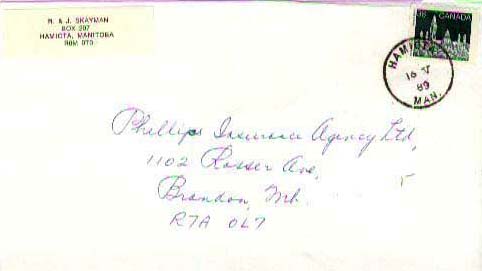 R. & J. SKAYMAN
BOX 207
HAMIOTA, MANITOBA
R0M 0T0
38 CANADA
HAMIOTA
16 V
89
MAN.
Phillips Insurance Agency Ltd,
1102 Rosser Ave,
Brandon, Mb.
R7A 0L7